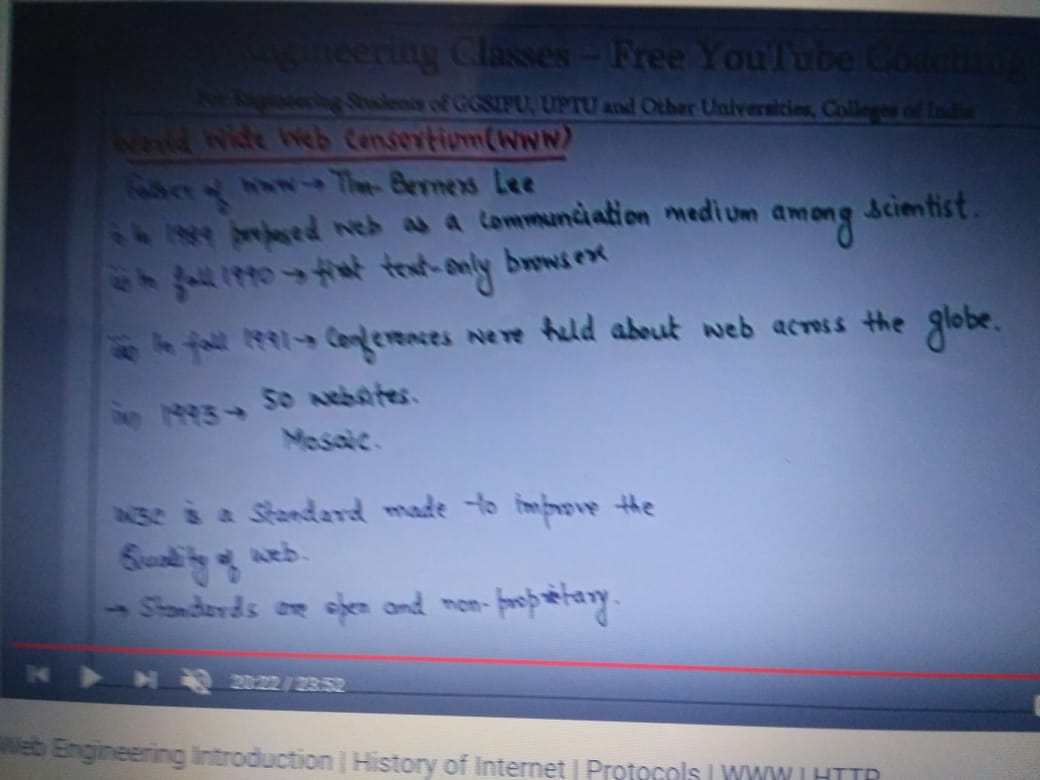 Engineering Classes – Free YouTube Coaching
For Engineering Students of GGSIPU, UPTU and Other Universities, Colleges of India
World Wide Web Consortium(WWW)
Father of WWW → Tim-Berners Lee
i) In 1989 proposed web as a Communciation medium among scientist.
ii) In fall 1990 → first text-only browser
iii) In fall 1991 → Conferences were held about web across the globe.
iv) 1993 → 50 websites.
Mosaic.
W3C is a Standard made to improve the
Quality of web.
→ Standards are open and non-proprietary.
20:22 / 23:52
Web Engineering Introduction | History of Internet | Protocols | WWW | HTTP